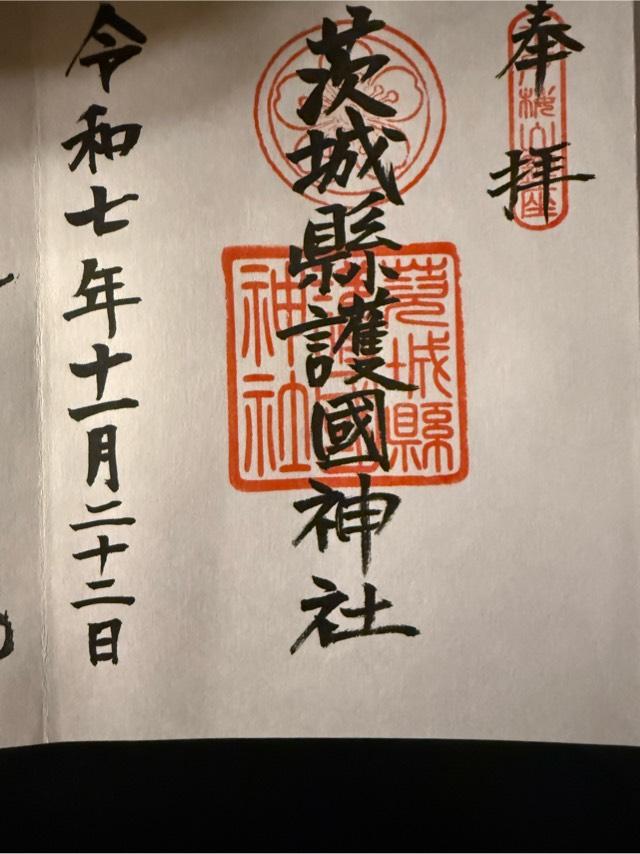 奉拝
茨城縣護國神社
茨城縣
護國
神社
令和七年十一月二十二日